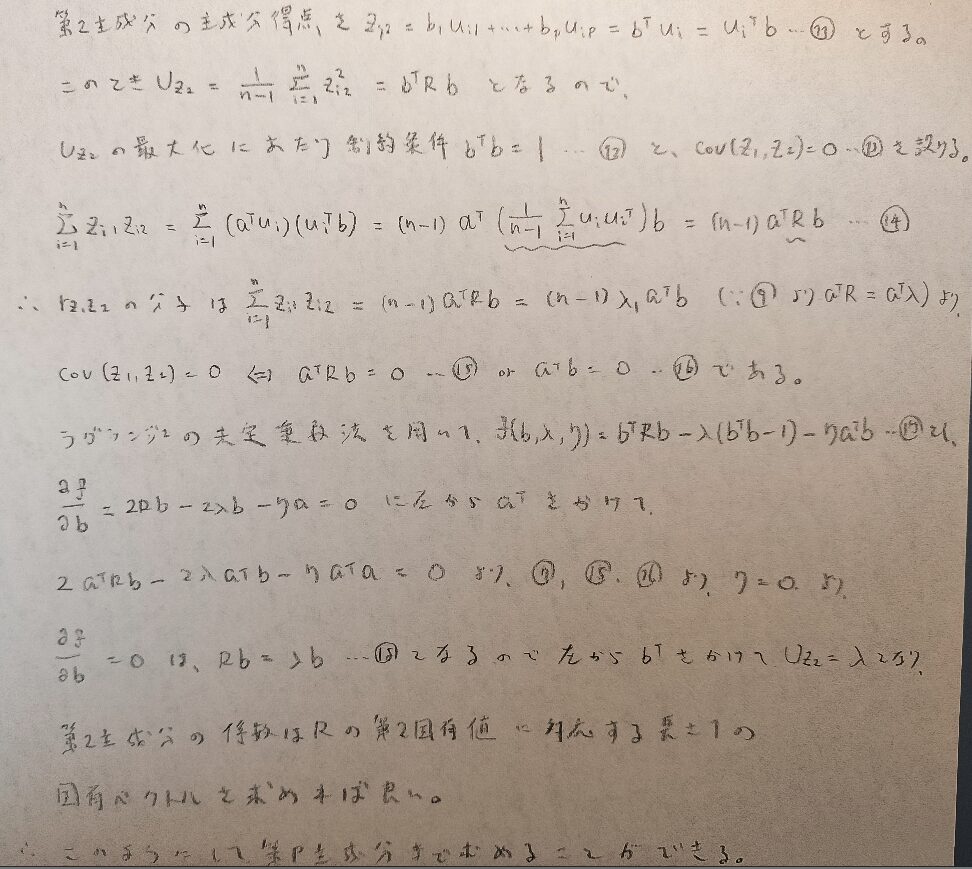 第2主成分の主成分得点を z_{i2} = b_1u_{i1} + … + b_pu_{ip} = b^T u_i = u_i^T b … ⑪ とする。
このとき U_{z_2} = \frac{1}{n-1} \sum_{i=1}^{n} z_{i2}^2 = b^T R b となるので、
U_{z_2} の最大化にあたり制約条件 b^T b = 1 … ⑫ と、cov(z_1, z_2) = 0 … ⑬ を設ける。
\sum_{i=1}^{n} z_{i1} z_{i2} = \sum_{i=1}^{n} (a^T u_i)(u_i^T b) = (n-1) a^T (\frac{1}{n-1} \sum_{i=1}^{n} u_i u_i^T) b = (n-1) a^T R b … ⑭
∴ r_{z_1z_2} の分子は \sum_{i=1}^{n} z_{i1} z_{i2} = (n-1) a^T R b = (n-1) λ_1 a^T b (∵ ⑨ より a^T R = a^T λ) より、
cov(z_1, z_2) = 0 ⇔ a^T R b = 0 … ⑮ or a^T b = 0 … ⑯ である。
ラグランジュの未定乗数法を用いて、f(b, λ, η) = b^T R b − λ(b^T b − 1) − η a^T b … ⑰ とし、
\frac{∂f}{∂b} = 2Rb − 2λb − ηa = 0 に左から a^T をかけて、
2a^T R b − 2λ a^T b − η a^T a = 0 より、 ⑮, ⑯ より、η = 0. より、
\frac{∂f}{∂b} = 0 は、Rb = λb … ⑱ となるので左から b^T をかけて U_{z_2} = λ となり、
第2主成分の係数は R の第2固有値に対応する長さ1の
固有ベクトルを求めれば良い。
∴ このようにして第P主成分まで求めることができる。